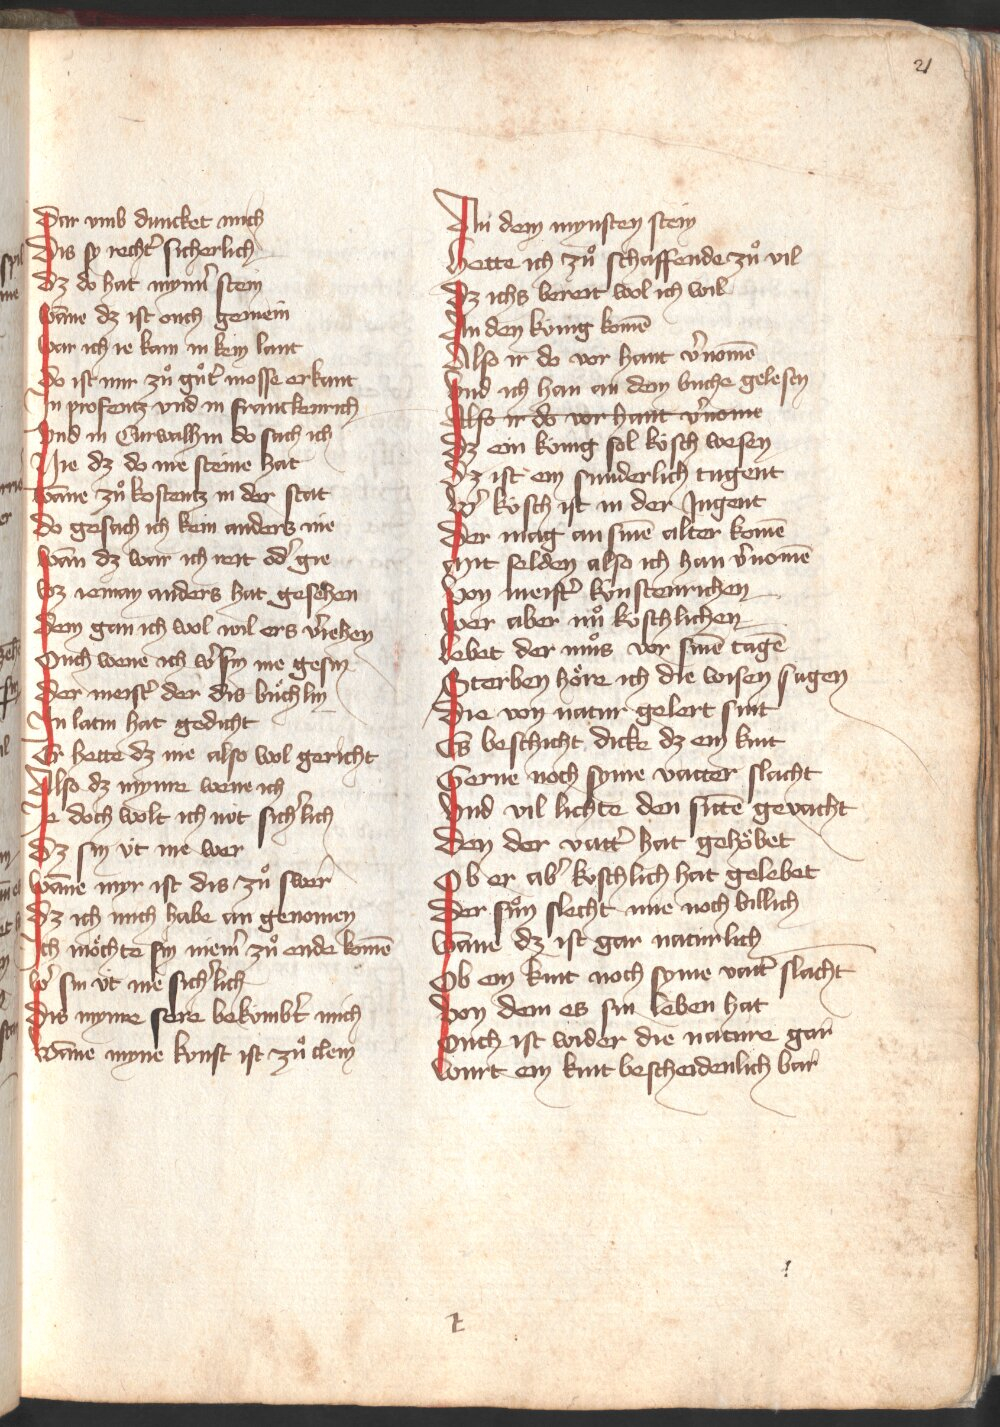 21
Dar vmb duncket mich
Dis sy recht' sicherlich
Dz do hat mynn' stein
Wāne dz ist ouch gemein
War ich ie kam in kein lant
Do ist mir zů gůt' mosse erkant
In profentz vnd in franckenrich
Vnd in Curwalhin do sach ich
Nie dz do me steine hat
Wāne zů kostentz in der stat
Do gesach ich kein anders nie
Wan dz war ich reit od' gie
Wz ieman anders hat gesehen
Dem gan ich wol wil ers v'iehen
Ouch wene ich w' sin me gesin
Der meist' der dis büchlin
In latin hat gedicht
Er hette dz me also wol gericht
Also dz myme wene ich
Ie doch wolt ich nüt sich'lich
Dz sin üt me wer
Wāne myr ist dis zů swer
Dz ich mich habe an genomen
Ich möchte sin niem' zů ende komē
W' sin üt me sich'lich
Dis myme sere bekümb't mich
Wāne myne kunst ist zů clein
An dem mynsten stein
Hette ich zů schaffende zů vil
Dz ichs bereit wol ich wil
An den künig komē
Also ir do vor hant v'nomē
Vnd ich han an dem buche gelesen
Also ir do vor hant v'nome
Dz ein künig sol küsch wesen
Dz ist ein sunderlich tugent
W' küsch ist in der Jugent
Der mag an sinē alter komē
Mit selden also ich han v'nomē
Von meist' kunstenrichen
Wer aber nů koschlichen
Lebet der můs vor sinē tagē
Sterben höre ich die wisen sagen
Die von natur gelert sint
Es beschicht dicke dz ein kint
Gerne noch syme vatter slacht
Vnd vil lichte den sitē gevacht
Den der vatt' hat gehöbet
Ob er ab' koschlich hat gelebet
Der sůn slecht ime noch billich
Wāne dz ist gar natürlich
Ob ein kint noch syme vatt' slacht
Von dem es sin leben hat
Ouch ist wider die nature gar
Wurt ein kint bescheidenlich bar